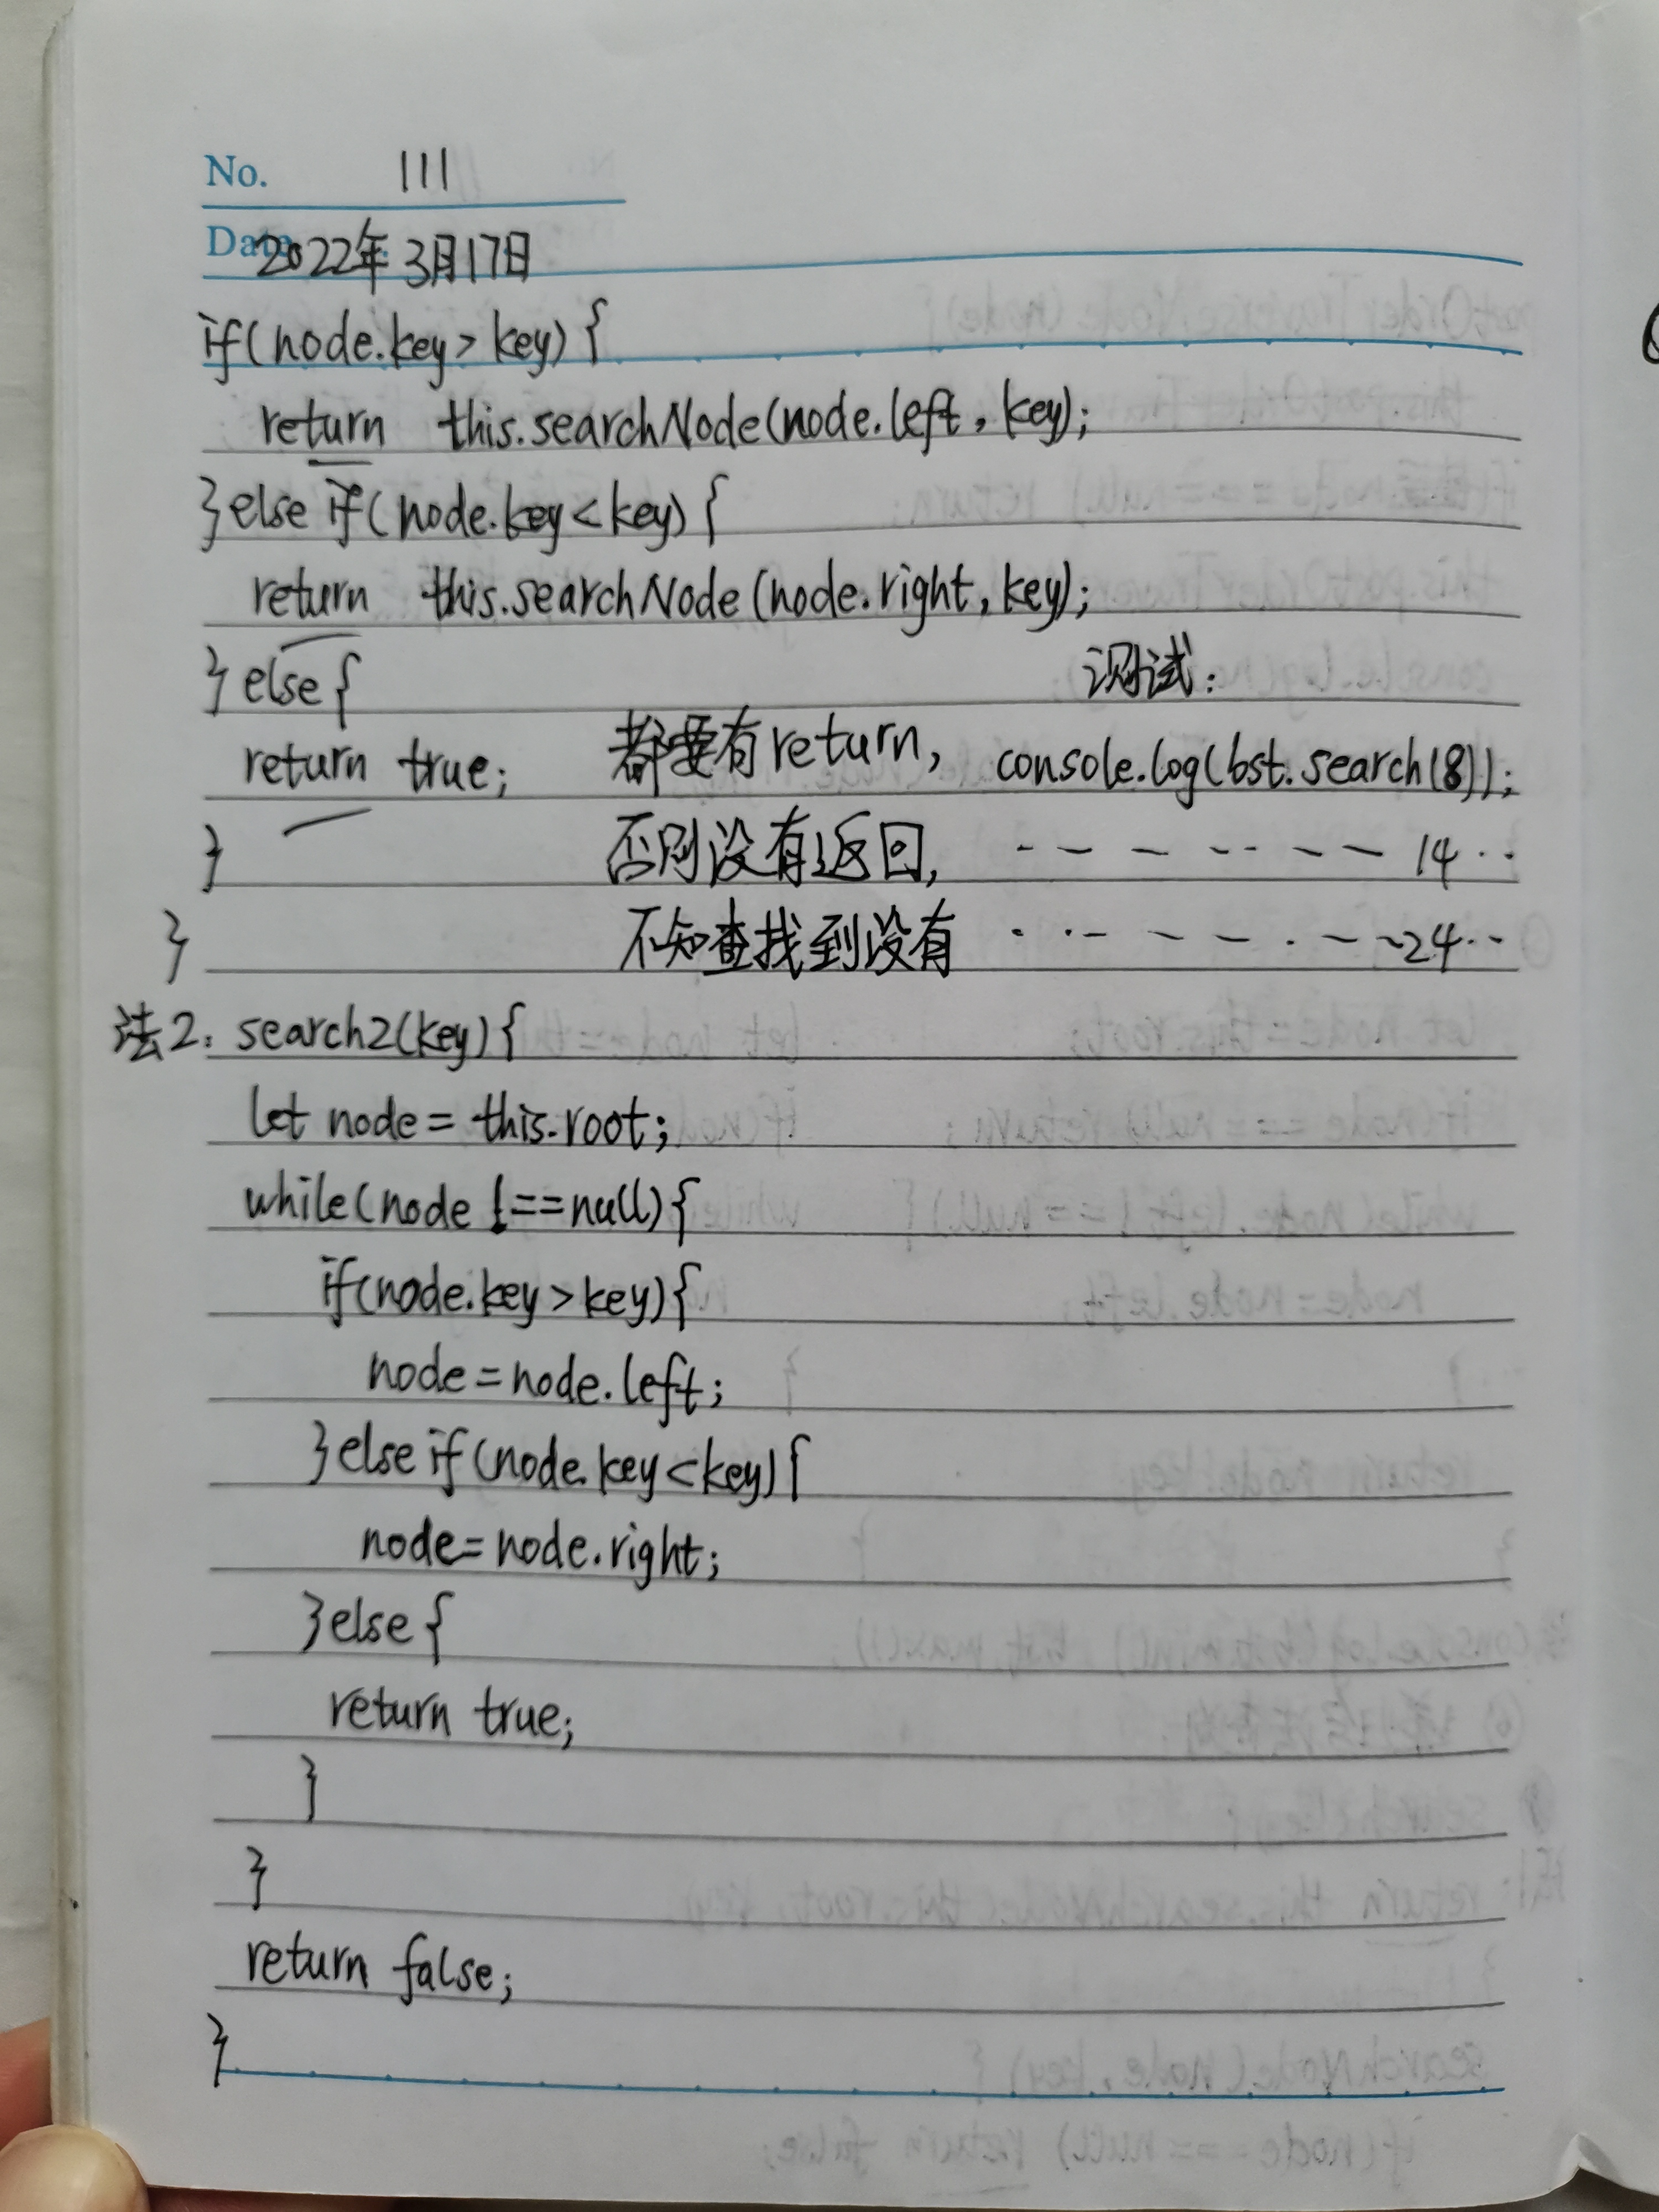 No. 111
Date 2022年3月17日
if(node.key > key) {
return this.searchNode(node.left, key);
}else if(node.key < key) {
return this.searchNode(node.right, key);
} else {
测试:
return true; 都要有return, console.log(bst.search(8));
} 否则没有返回, - - - - - - - 14 ..
} 不知查找到没有 . . - - - . - ~24..
法2: search2(key) {
let node = this.root;
while(node !==null) {
if(node.key > key) {
node = node.left;
}else if(node.key < key) {
node = node.right;
}else {
return true;
}
}
return false;
}